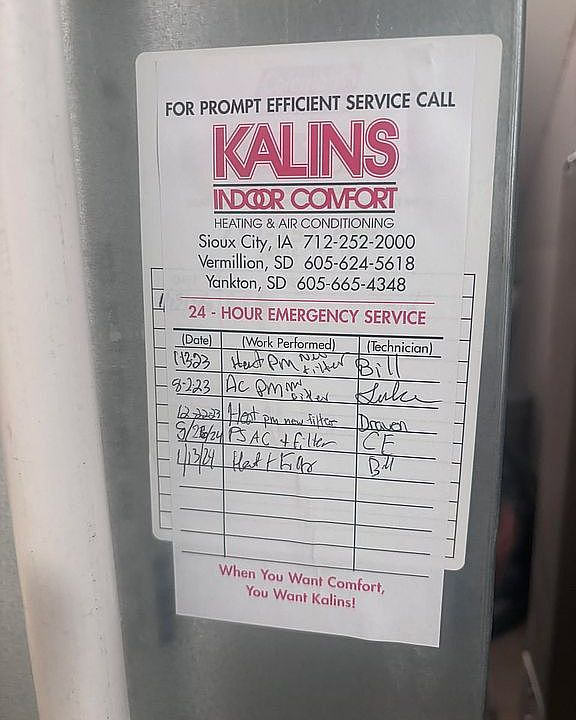 FOR PROMPT EFFICIENT SERVICE CALL
KALINS
INDOOR COMFORT
HEATING & AIR CONDITIONING
Sioux City, IA 712-252-2000
Vermillion, SD 605-624-5618
Yankton, SD 605-665-4348
24 - HOUR EMERGENCY SERVICE
(Date) (Work Performed) (Technician)
Heat PM new filter Bill
8-2-23 AC PM new filter Luke
12-22-23 Heat pm new filter Draven
AC + Filter CE
1/13/24 Heat + Bill
When You Want Comfort,
You Want Kalins!